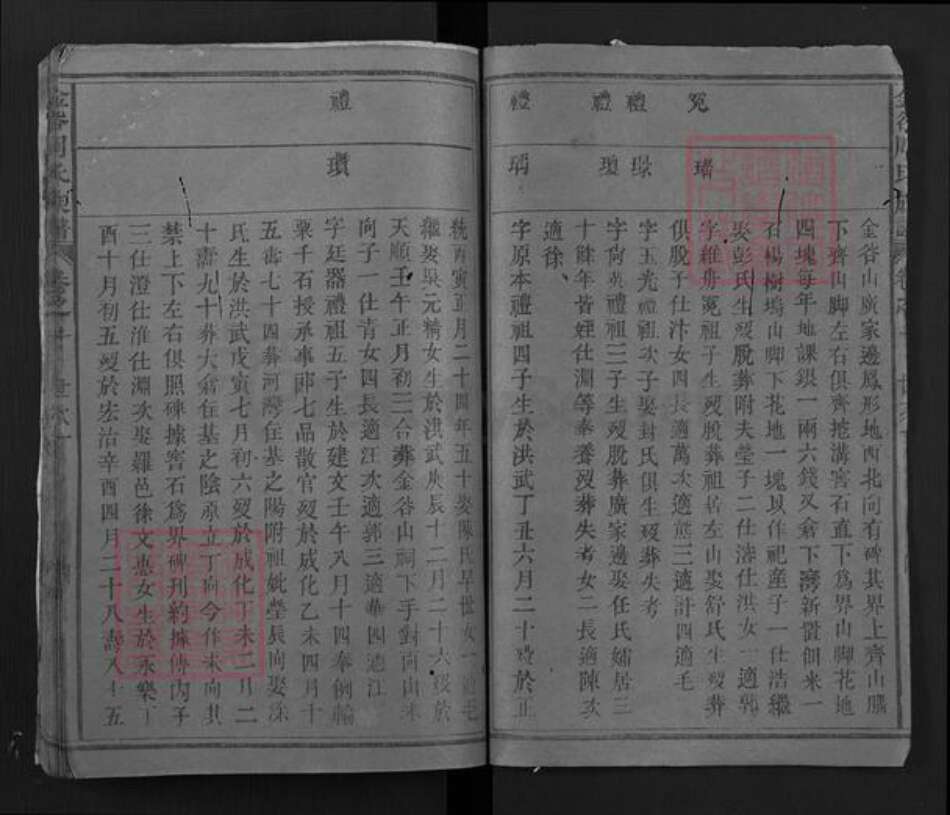 冕 禮 禮 禮
璠 琮 瓊 瑀
金谷山廣家邊鳳形地西北向有碑其界上齊山隴
下齊山脚左右俱齊挖溝窖石直下爲界山脚花地
四塊每年地課銀一兩六錢又倉下灣新置佃米一
石楊樹塢山脚下花地一塊以作祀產子一仕浩繼
娶彭氏生歿脫葬附夫塋子二仕濬仕洪女一適郭
字維舟冕祖子生歿脫葬祖居左山娶舒氏生歿葬
俱脫子仕汴女四長適萬次適熊三適計四適毛
字玉光禮祖次子娶封氏俱生歿葬失考
字尚英禮祖三子生歿脫葬廣家邊娶任氏孀居三
十餘年皆姪仕淵等奉養歿葬失考女二長適陳次
適徐
字原本禮祖四子生於洪武丁丑六月二十歿於正
禮
瓚
統丙寅正月二十四年五十娶陳氏早世女一適毛
繼娶吳元精女生於洪武庚辰十二月二十六歿於
天順壬午正月初三合葬金谷山祠下手對面山來
向子一仕青女四長適江次適郭三適華四適江
字廷器禮祖五子生於建文壬午八月十四奉例輸
粟千石授承事郎七品散官歿於成化乙未四月十
五壽七十四葬河灣住基之陽附祖妣塋辰向娶涂
氏生於洪武戊寅七月初六歿於成化丁未二月二
十壽九十葬大倉住基之陰原立丁向今作未向其
禁上下左右俱照碑據窖石爲界碑刊約據傳內子
三仕澄仕淮仕淵次娶羅邑徐文惠女生於永樂
酉十月初五歿於宏治辛酉四月二十八壽八十五